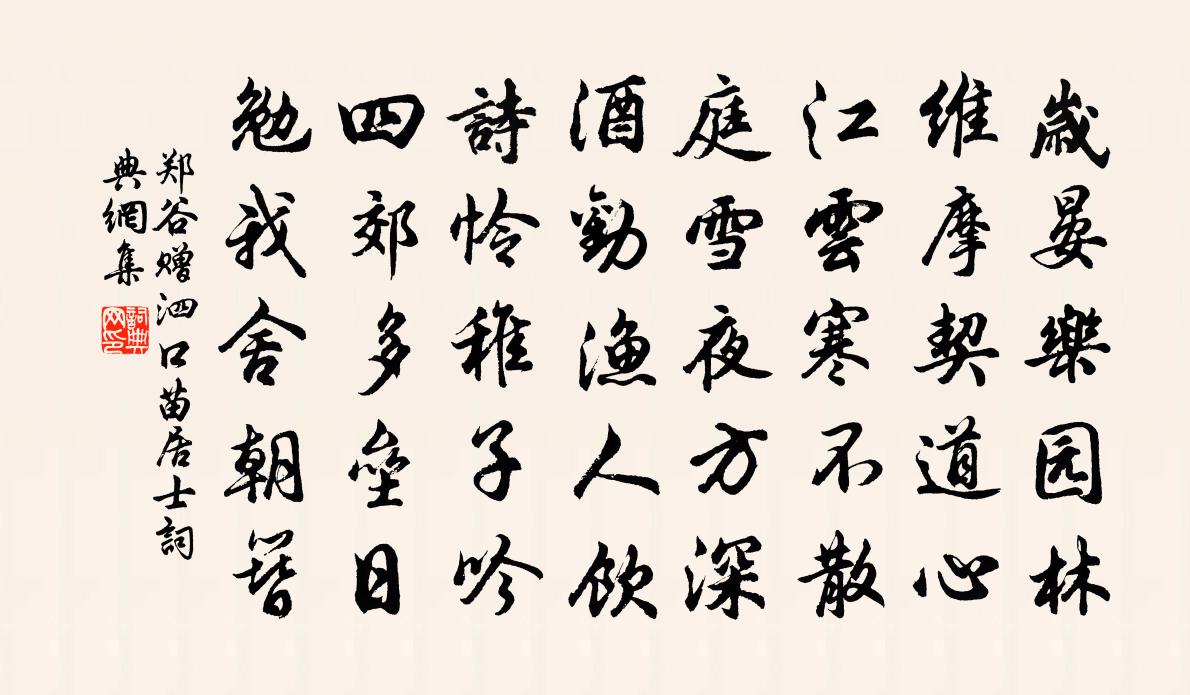 歲晏樂园林
維摩契道心
江雲寒不散
庭雪夜方深
酒勸漁人飲
詩怜稚子吟
四郊多壘日
勉我舍朝簪
郑谷赠泗口苗居士詞
典網集
詞典
网印